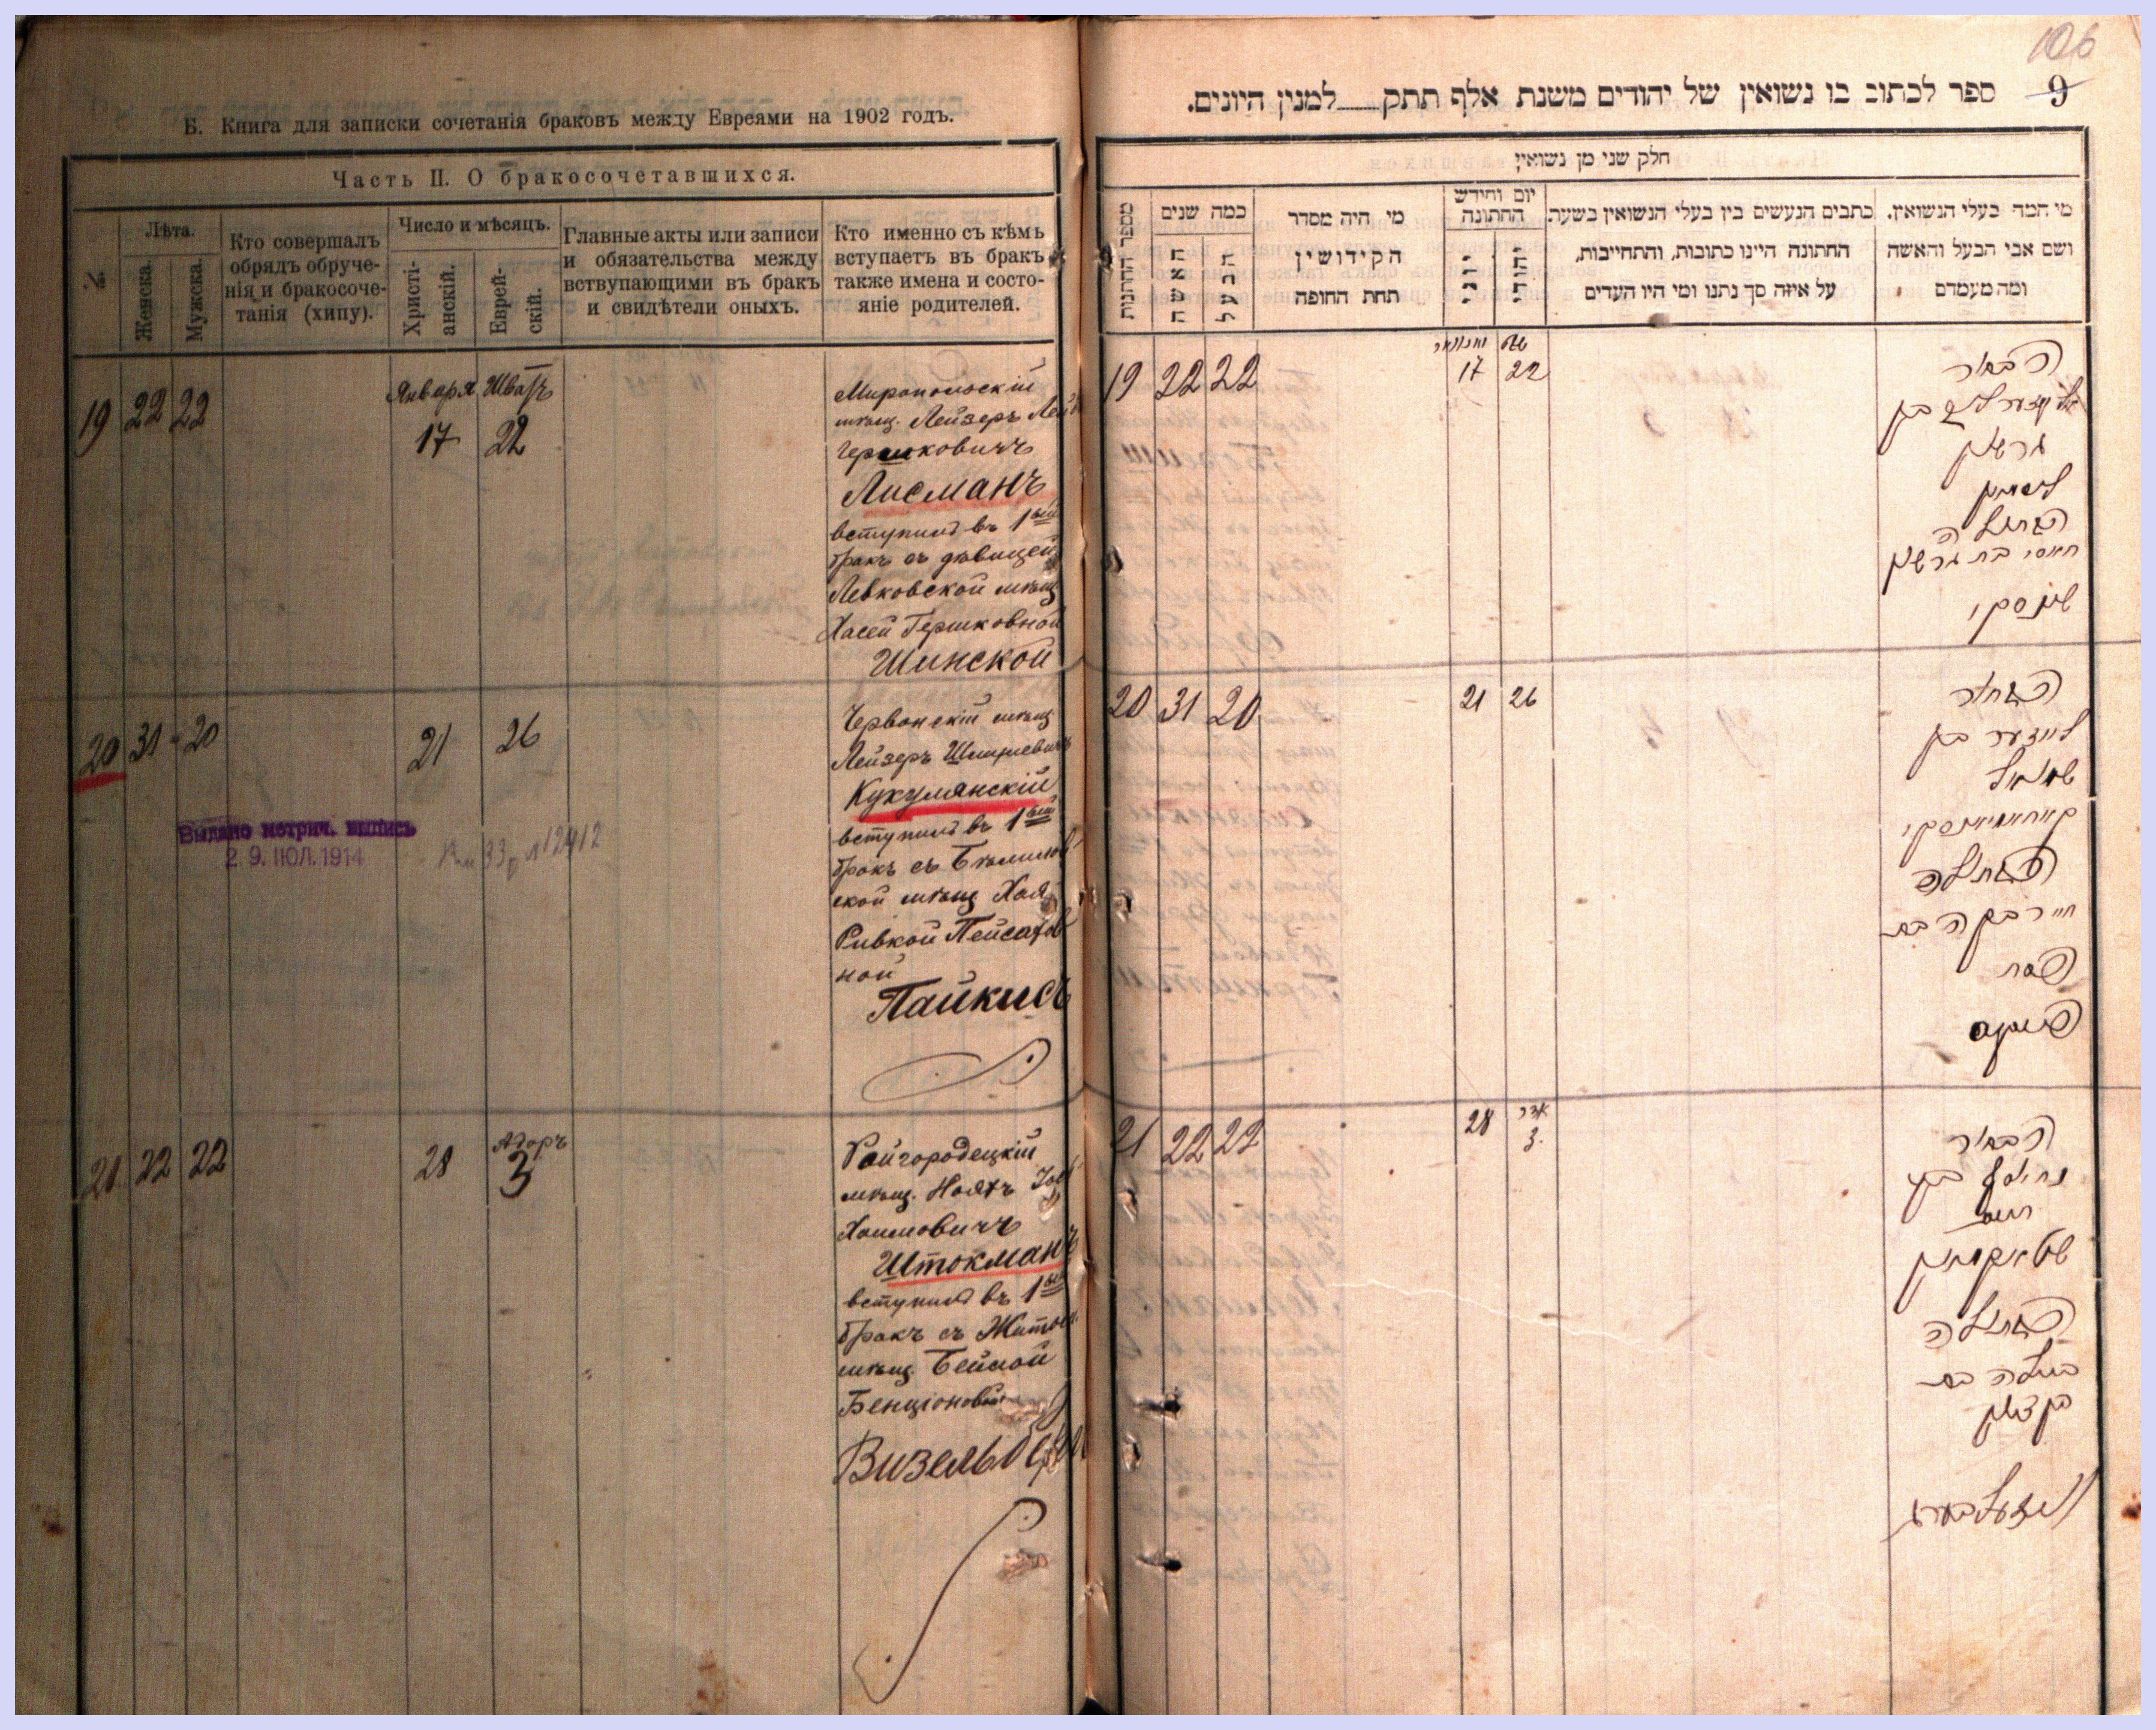 Б. Книга для записки сочетанія браковъ между Евреями на 1902 годъ.
Часть II. О бракосочетавшихся.
№
Лѣта.
Женска.
Мужска.
Кто совершалъ
обрядъ обруче-
нія и бракосоче-
танія (хипу).
Число и мѣсяцъ.
Христі-
анскій.
Еврей-
скій.
Главные акты или записи
и обязательства между
вствупающими въ бракъ
и свидѣтели оныхъ.
Кто именно съ кѣмъ
вступаетъ въ бракъ
также имена и состо-
яніе родителей.
19 22 22
Января Шватъ
17 22
Миропольскій
мѣщ. Лейзеръ
Гершковичъ
Лисманъ
вступилъ въ 1ый
бракъ съ дѣвицей
Левковской мѣщ
Хасей Гершковной
Шинской
20 31 20
21 26
Червонскій мѣщ
Лейзеръ
Кукулянскій
вступилъ въ 1ый
бракъ съ
ской мѣщ Хая
Ривкой Пейсахов
ной
Пайкисъ
Выдано метрич. выпись
29. ІЮЛ. 1914
21 22 22
28
Адаръ
3
Райгородецкій
мѣщ. Нояхъ
Хаимовичъ
Штокманъ
вступилъ въ 1ый
бракъ съ Житом.
мѣщ. Бейлой
Бенціоновной
106
9
ספר לכתוב בו נשואין של יהודים משנת אלף תתק למנין היונים.
חלק שני מן נשואין
מספר החתונות
כמה שנים
האשה
הבעל
מי היה מסדר
הקידושין
תחת החופה
יום וחידש
החתונה
יוני
יהודי
כתבים הנעשים בין בעלי הנשואין בשעה
החתונה היינו כתובות, והתחייבות,
על איזה סך נתנו ומי היו העדים
מי המה בעלי הנשואין.
ושם אבי הבעל והאשה
ומה מעמדם
19 22 22
יאנואר שבט
17 22
הבחור
גרשון
ליסמאן
הבתולה
חאסי בת גרשון
שינסקי
20 31 20
21 26
הבחור
לייזער בן
שמואל
הבתולה
חיי רבקה בת
פסח
פייקס
21 22 22
28
אדר
3
הבחור
חיים
שטאקמאן
הבתולה
ביילה בת
בן ציון
וויזעלבערג